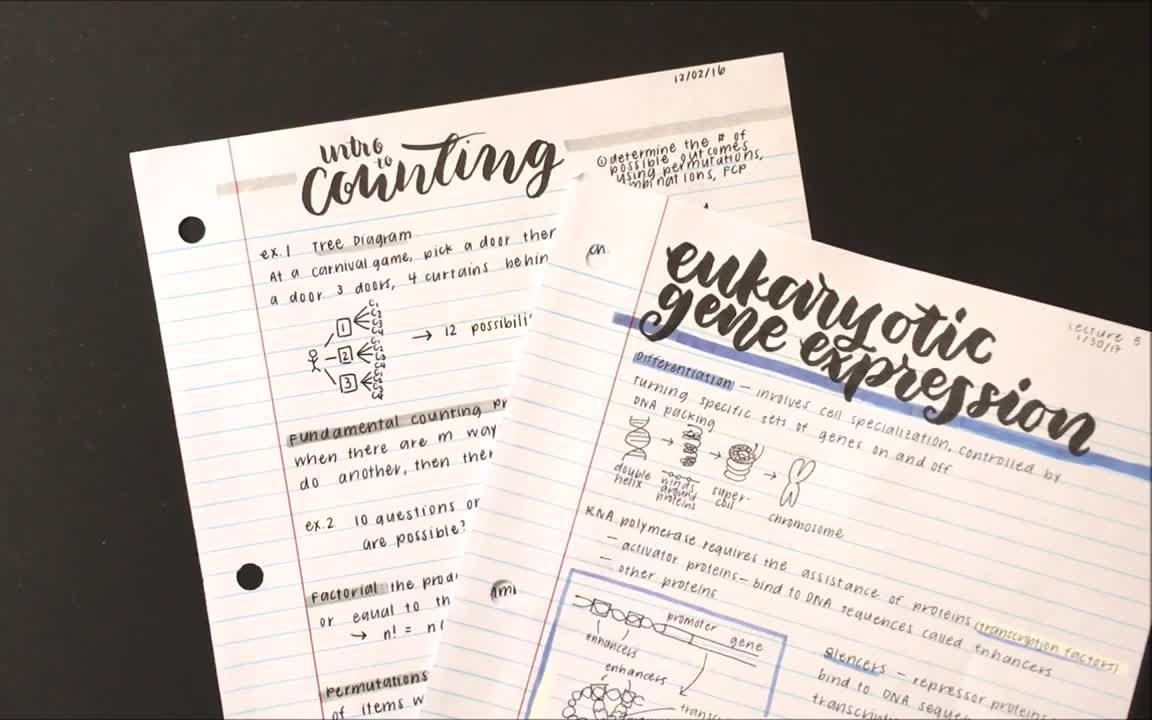 12/02/16
intro
to
counting
① determine the # of
possible outcomes
using permutations,
FCP
ex. 1 Tree Diagram
At a carnival game, pick a door
a door. 3 doors, 4 curtains
C1
C2
C3
C4
1
C1
C2
C3
C4
2
C1
C2
C3
C4
3
→ 12
Fundamental counting
when there are m
do another, then
ex. 2 10 questions or
are possible?
Factorial: the
or equal to
→ n! =
permutations
of items
eukaryotic
gene expression
Lecture 5
1/30/17
Differentiation – involves cell specialization, controlled by
turning specific sets of genes on and off
DNA packing
double
helix
winds
around
proteins
super-
coil
chromosome
RNA polymerase requires the assistance of proteins (transcription factors)
– activator proteins – bind to DNA sequences called enhancers
– other proteins
promoter
gene
enhancers
enhancers
Silencers – repressor proteins
bind to DNA